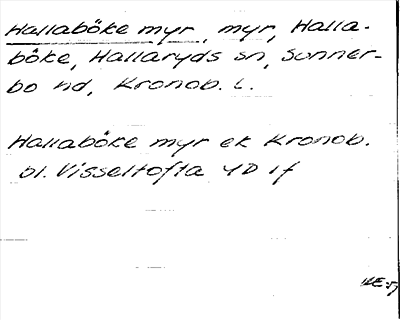 Hallaböke myr, myr, Halla-
böke, Hallaryds sn, Sunner-
bo hd, Kronob. l.
Hallaböke myr ek Kronob.
bl. Visseltofta 4D 1f